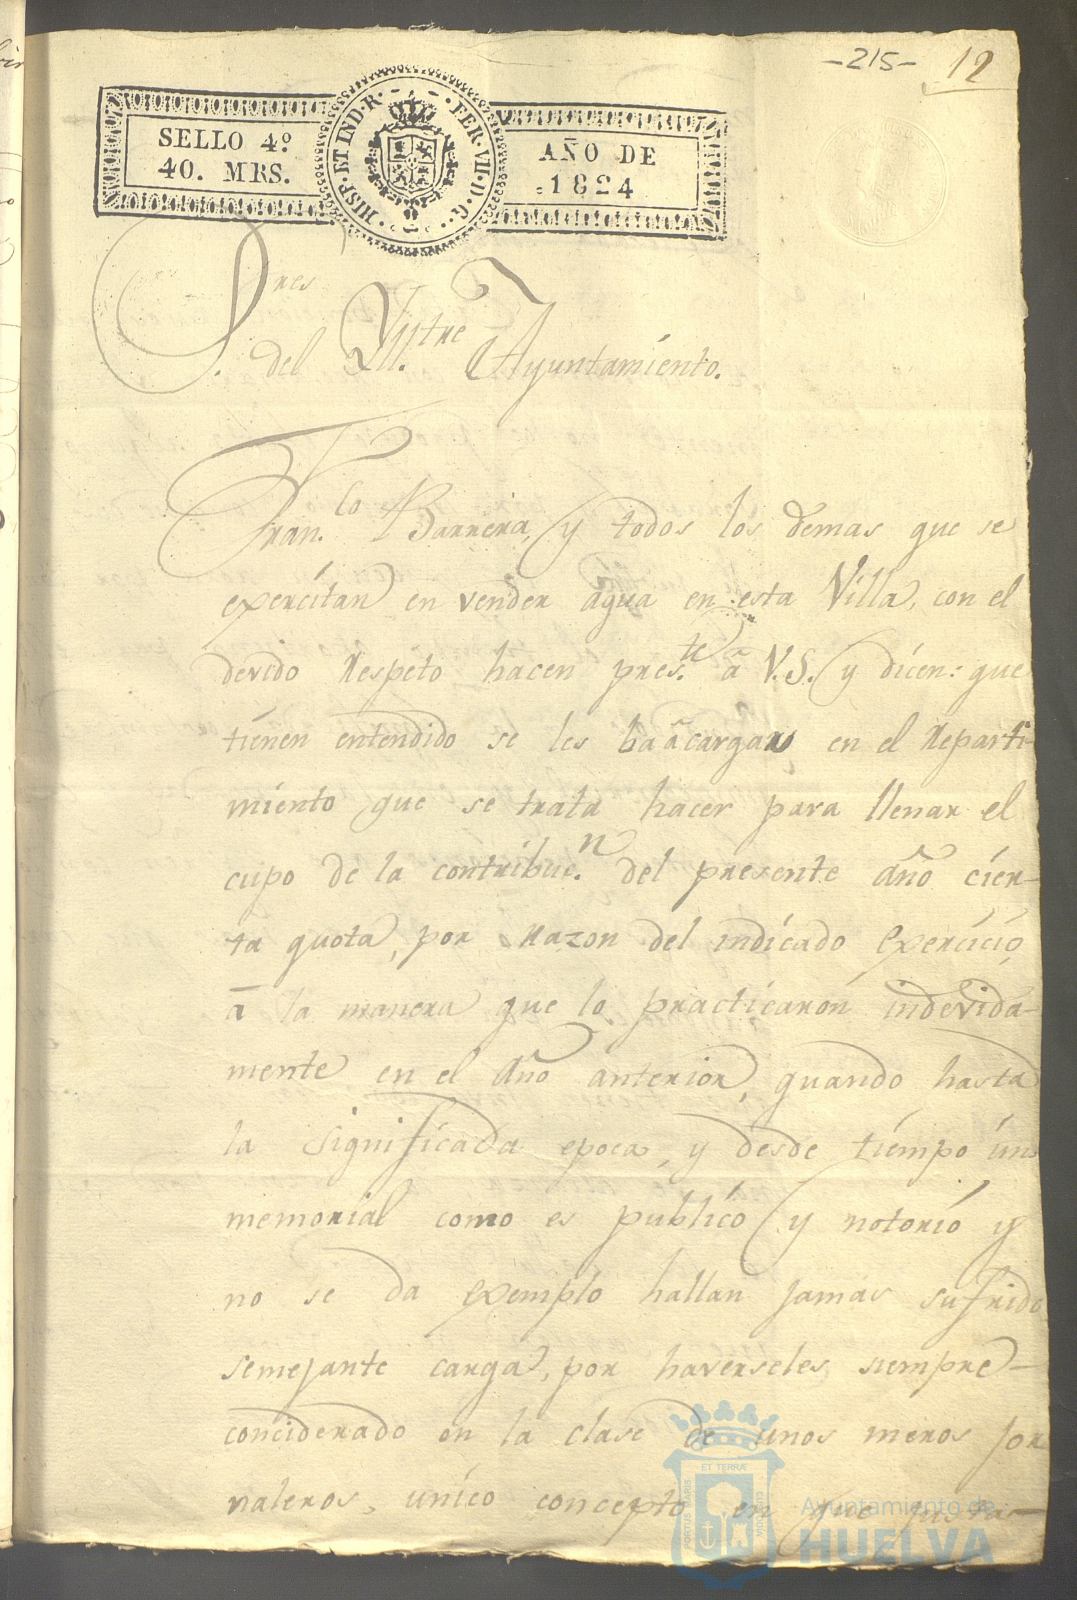 -215-
12
SELLO 4º
40. MRS.
HISP. ET IND. R. FER. VII. D. G.
AÑO DE
1824
S.res
del Yll.tre Ayuntamiento.
Fran.co Barrera, y todos los demas que se
exercitan en vender agua en esta Villa, con el
devido respeto hacen pres.te â V.S. y dicen: que
tienen entendido se les ba â cargar en el reparti-
miento que se trata hacer para llenar el
cupo de la contribuc.n del presente año cier-
ta quota, por razon del indicado exercicio,
â la manera que lo practicaron indevida-
mente en el año anterior, quando hasta
la significada epoca, y desde tiempo ún
memorial como es publico y notorio y
no se da exemplo hallan jamas sufrido
semejante carga, por haverseles siempre
conciderado en la clase de unos meros jor
naleros, unico concepto en que justa-
PORTUS MARIS ET TERRÆ CUSTODIA
Ayuntamiento de
HUELVA